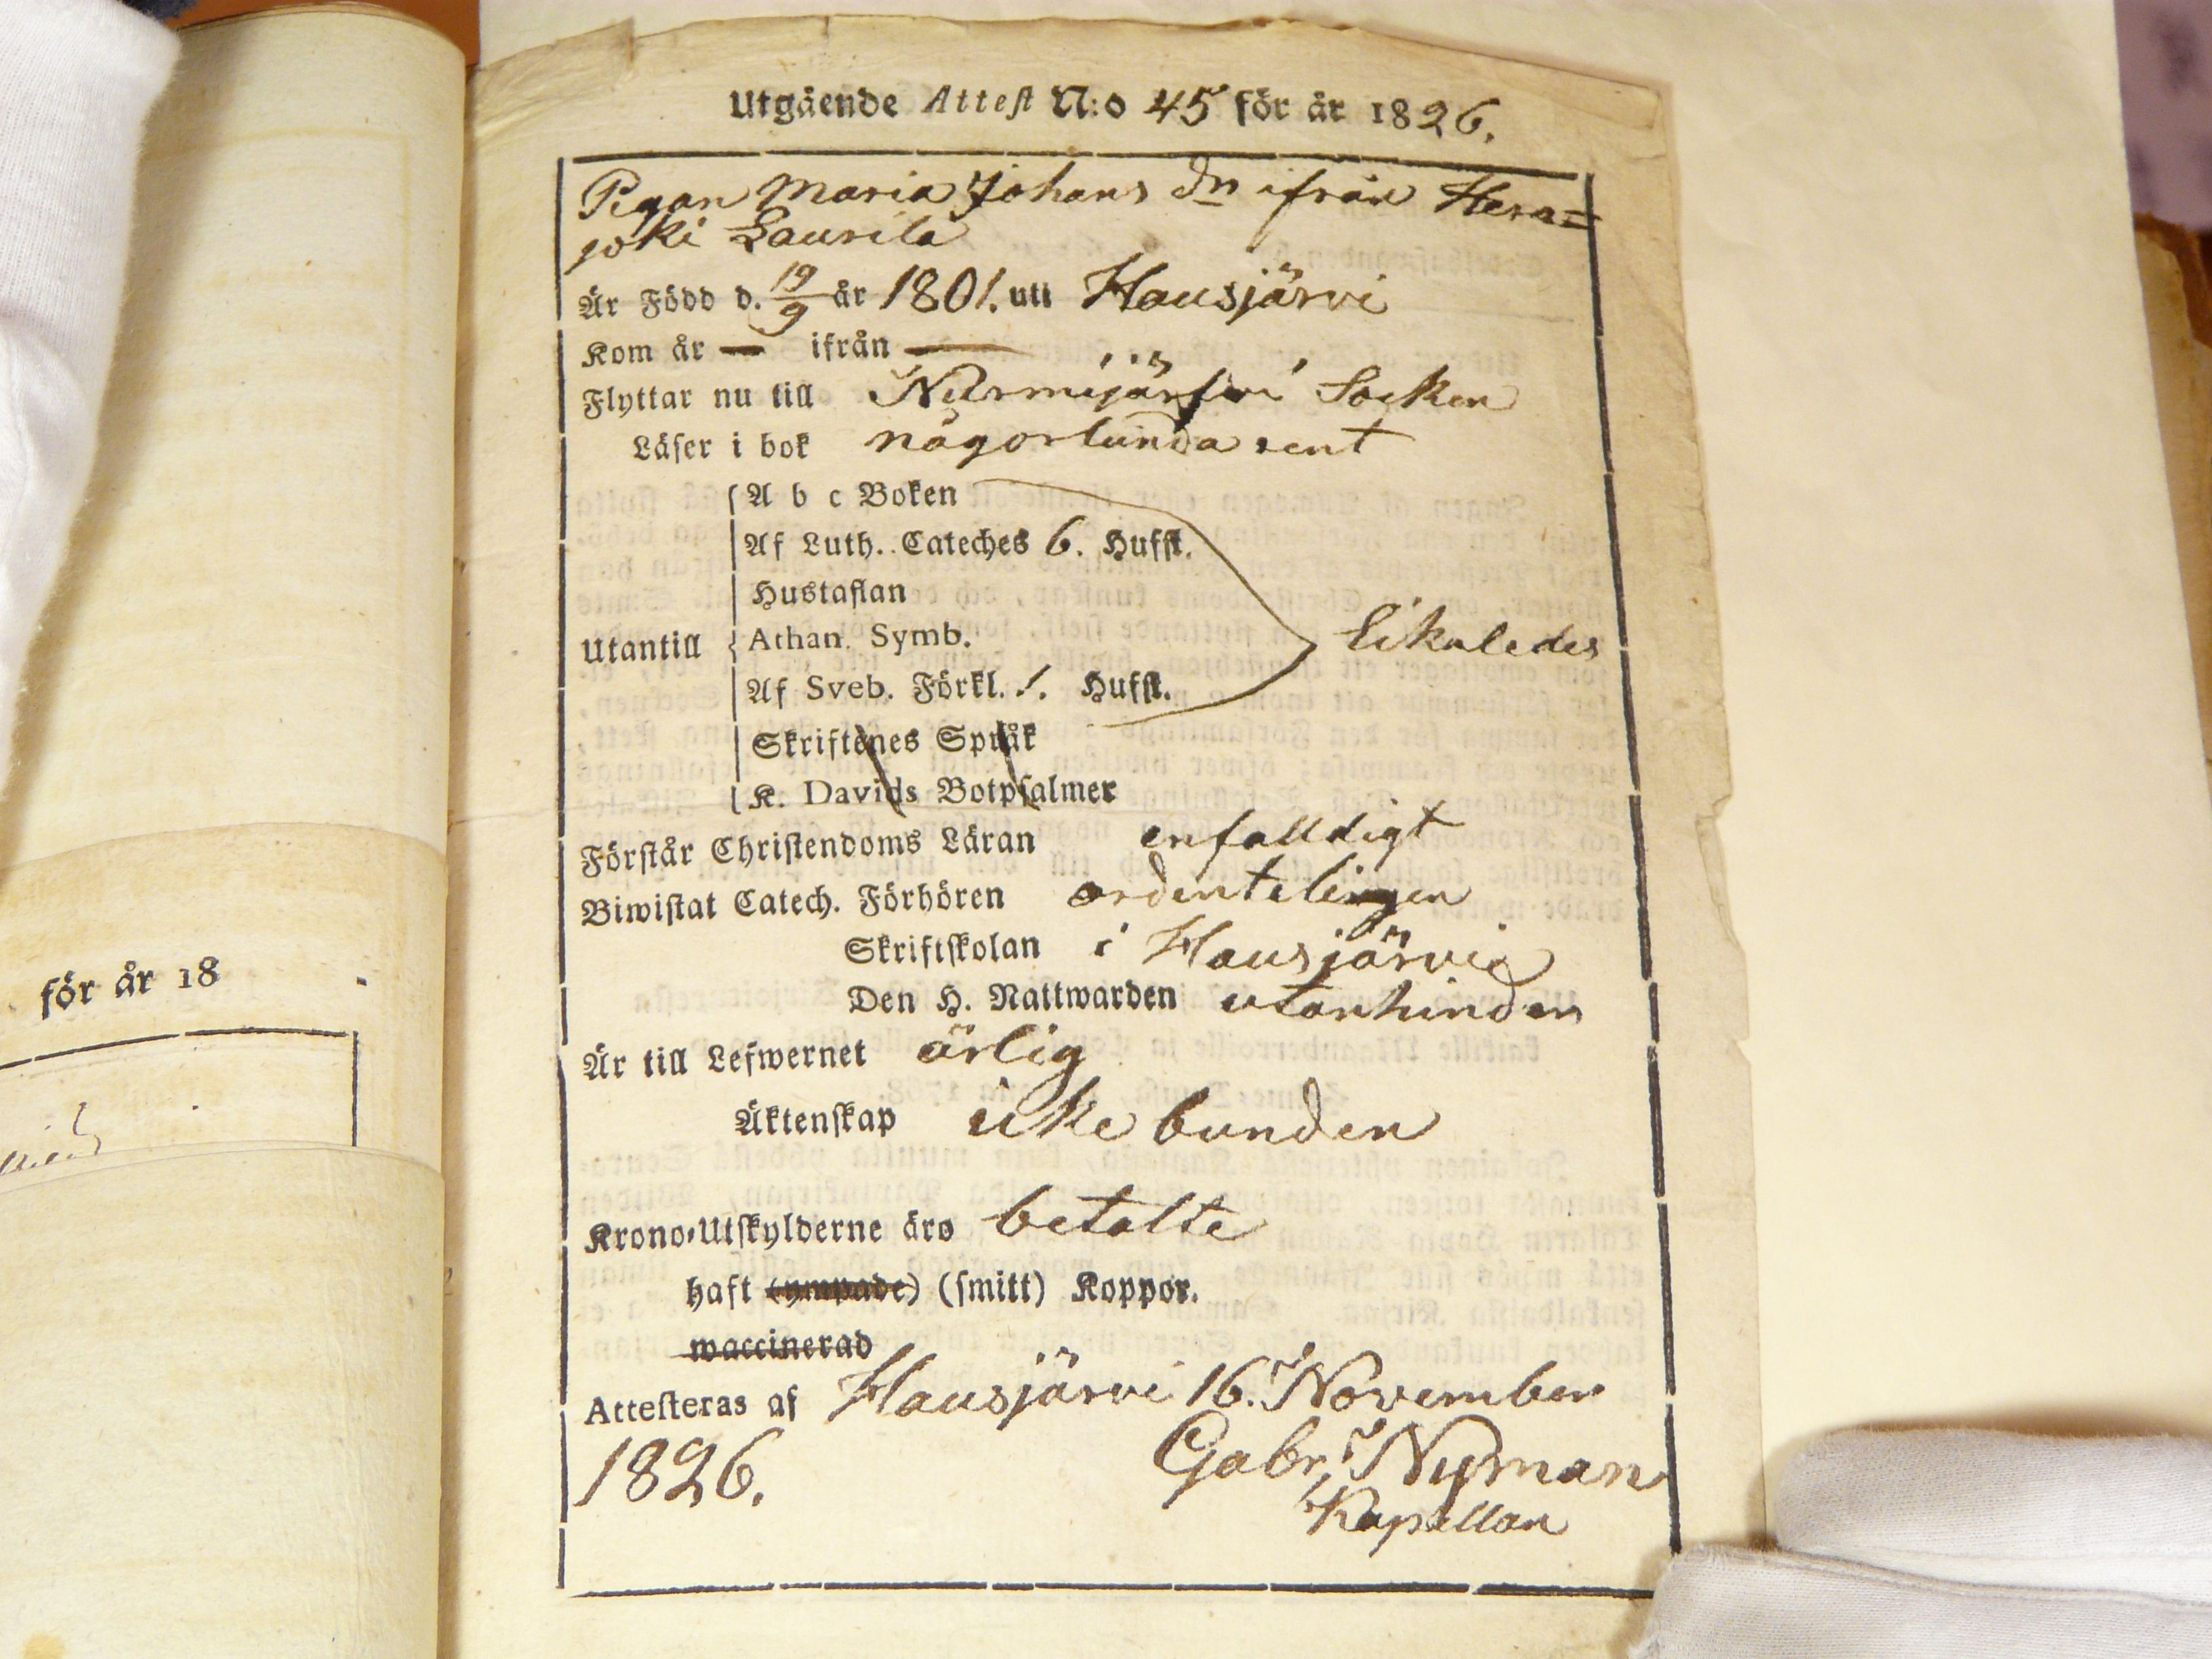 Utgående Attest N:o 45 för år 1826.
Pigan Maria Johans dn ifrån Hera=
joki Laurila
Är Född d. 19/9 år 1801. uti Hausjärvi
Kom år — ifrån —
Flyttar nu till Nurmijärfvi Socken
Läser i bok någorlunda rent
A b c Boken
Af Luth. Cateches 6. Hufst.
Hustaflan
Utantill Athan. Symb. Likaledes
Af Sveb. Förkl. 1. Hufst.
Skriftenes Språk
K. Davids Botpsalmer
Förstår Christendoms Läran enfalldigt
Biwistat Catech. Förhören ordenteligen
Skriftskolan i Hausjärvi
Den H. Nattwarden utan hinder
Är till Lefwernet ärlig
Äktenskap icke bunden
Krono-Utskylderne äro betalte
haft (ympade) (smitt) Koppor.
waccinerad
Attesteras af Hausjärvi 16. November
1826. Gabr. Nyman
Kapellan
för år 18 .